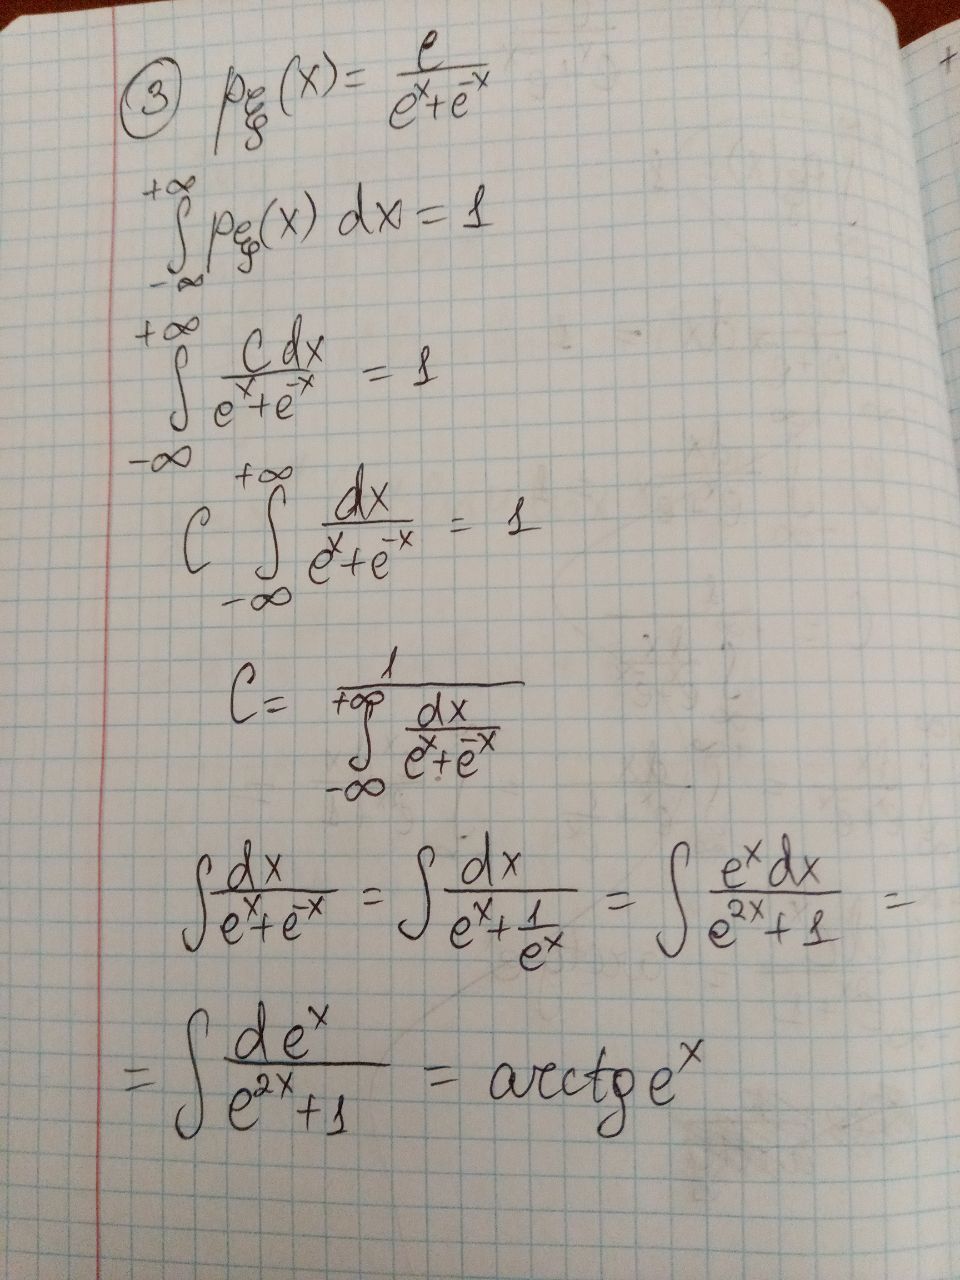 ③ p_ξ(x) = c/(e^x + e^{-x})
∫_{-∞}^{+∞} p_ξ(x) dx = 1
∫_{-∞}^{+∞} C dx/(e^x + e^{-x}) = 1
C ∫_{-∞}^{+∞} dx/(e^x + e^{-x}) = 1
C = 1/(∫_{-∞}^{+∞} dx/(e^x + e^{-x}))
∫ dx/(e^x + e^{-x}) = ∫ dx/(e^x + 1/e^x) = ∫ e^x dx/(e^{2x} + 1) =
= ∫ de^x/(e^{2x} + 1) = arctg e^x
+